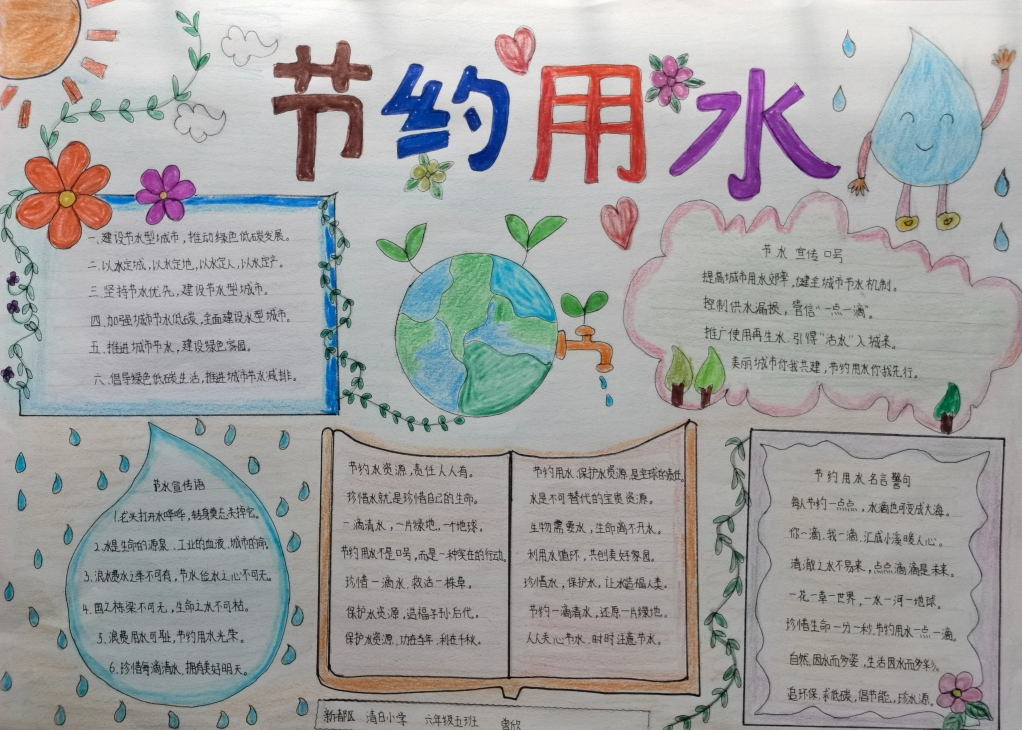 节约用水
一.建设节水型城市,推动绿色低碳发展。
二.以水定城,以水定地,以水定人,以水定产。
三.坚持节水优先,建设节水型城市。
四.加强城市节水低碳,全面建设水型城市。
五.推进城市节水,建设绿色家园。
六.倡导绿色低碳生活,推进城市节水减排。
节水宣传口号
提高城市用水效率,健全城市节水机制。
控制供水漏损,管信“一点一滴”。
推广使用再生水.引得“活水”入城来。
美丽城市你我共建,节约用水你我先行。
节水宣传语
1.老头打开水哗哗,转身莫忘关掉它。
2.水是生命的源泉、工业的血液、城市的命
3.浪水费水之举不可有,节水俭水之心不可无。
4.国之栋梁不可无,生命之水不可枯。
5.浪费用水可耻,节约用水光荣。
6.珍惜每滴清水,拥有美好明天。
节约水资源,责任人人有。
珍惜水就是珍惜自己的生命。
一滴清水,一片绿地,一个地球。
节约用水不是口号,而是一种实在的行动。
珍惜一滴水,救活一株草。
保护水资源,造福子孙后代。
保护水资源,功在当年,利在千秋。
节约用水、保护水资源,是全球的责任。
水是不可替代的宝贵资源。
生物需要水,生命离不开水。
利用水循环,共创美好家园。
珍惜水,保护水,让水造福人类。
节约一滴清水,还原一片绿地。
人人关心节水,时时注意节水。
节约用水名言警句
每天节约一点点,水滴也可变成大海。
你一滴,我一滴,汇成小溪暖人心。
清澈之水不易来,点点滴滴是未来。
一花一草一世界,一水一河一地球。
珍惜生命一分一秒,节约用水一点一滴。
自然因水而多姿,生活因水而多彩。
追环保、求低碳,倡节能,珍水源。
新都区 清白小学 六年级五班